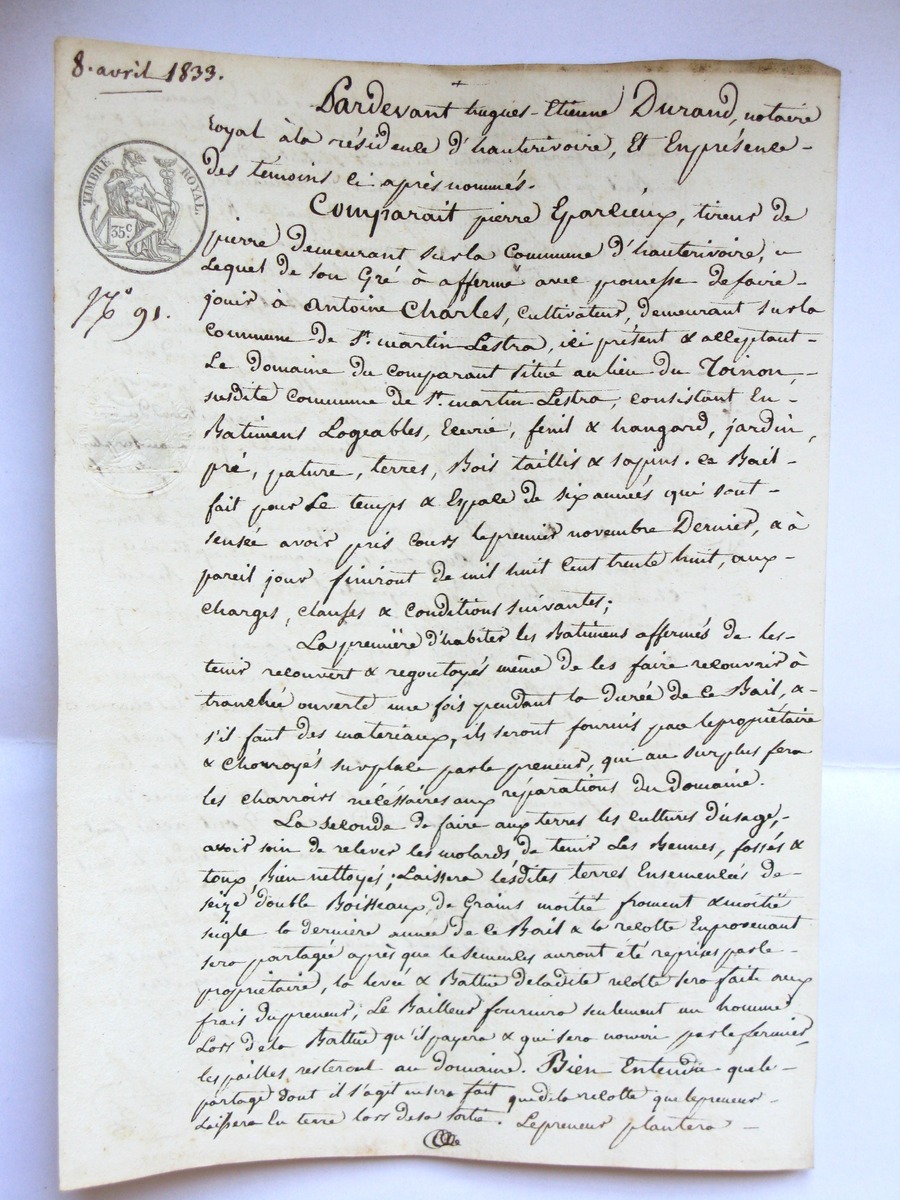 8. avril 1833.
Pardevant hugues-Etienne Durand, notaire
royal à la résidence d'hauterivoire, Et En présence
des témoins ci après nommés.
TIMBRE ROYAL.
35 c.
Comparait pierre Eparvieux, tireur de
pierre demeurant sur la Commune d'hauterivoire,
Lequel de son Gré à affermé avec promesse de faire
jouir à Antoine Charles, cultivateur, demeurant sur la
N.° 91.
commune de St. martin Lestra, ici présent & acceptant
Le domaine du comparant situé au lieu du Toinon,
susdite Commune de St. martin Lestra, consistant En
Batimens Logeables, Ecurie, fenil & hangard, jardin,
pré, pature, terres, Bois taillis & sapins. ce Bail
fait pour Le temps & Espace de six années qui sont
sensée avoir pris cours le premier novembre Dernier, & à
pareil jour finiront de mil huit Cent trente huit, aux
charges, clauses & conditions suivantes;
La première d'habiter les Batimens affermés de les
tenir recouvert & regoutoyés même de les faire recouvrir à
tranchée ouverte une fois pendant la durée de ce Bail, &
s'il faut des materiaux, ils seront fournis par le propriétaire
& Charroyés sur place par le preneur, qui au surplus fera
les charrois nécéssaires aux réparations du Domaine.
La seconde de faire aux terres les cultures d'usage,
avoir soin de relever les molards, de tenir Les Bennes, fossés &
tous Bien nettoyés; Laissera lesdites terres Ensemencées de
seize double Boisseaux de Grains moitié froment & moitié
seigle la dernière année de ce Bail & la récolte En provenant
sera partagée après que le semences auront été reprises par le
propriétaire, la levée & Battue de ladite récolte sera faite aux
frais du preneur; Le Bailleur fournira seulement un homme
Lors de la Battue qu'il payera & qui sera nourri par le fermier,
les pailles resteront au domaine. Bien Entendu que le
partage dont il s'agit ne sera fait que de la récolte que le preneur
Laissera En terre lors de sa sortie. Le preneur plantera